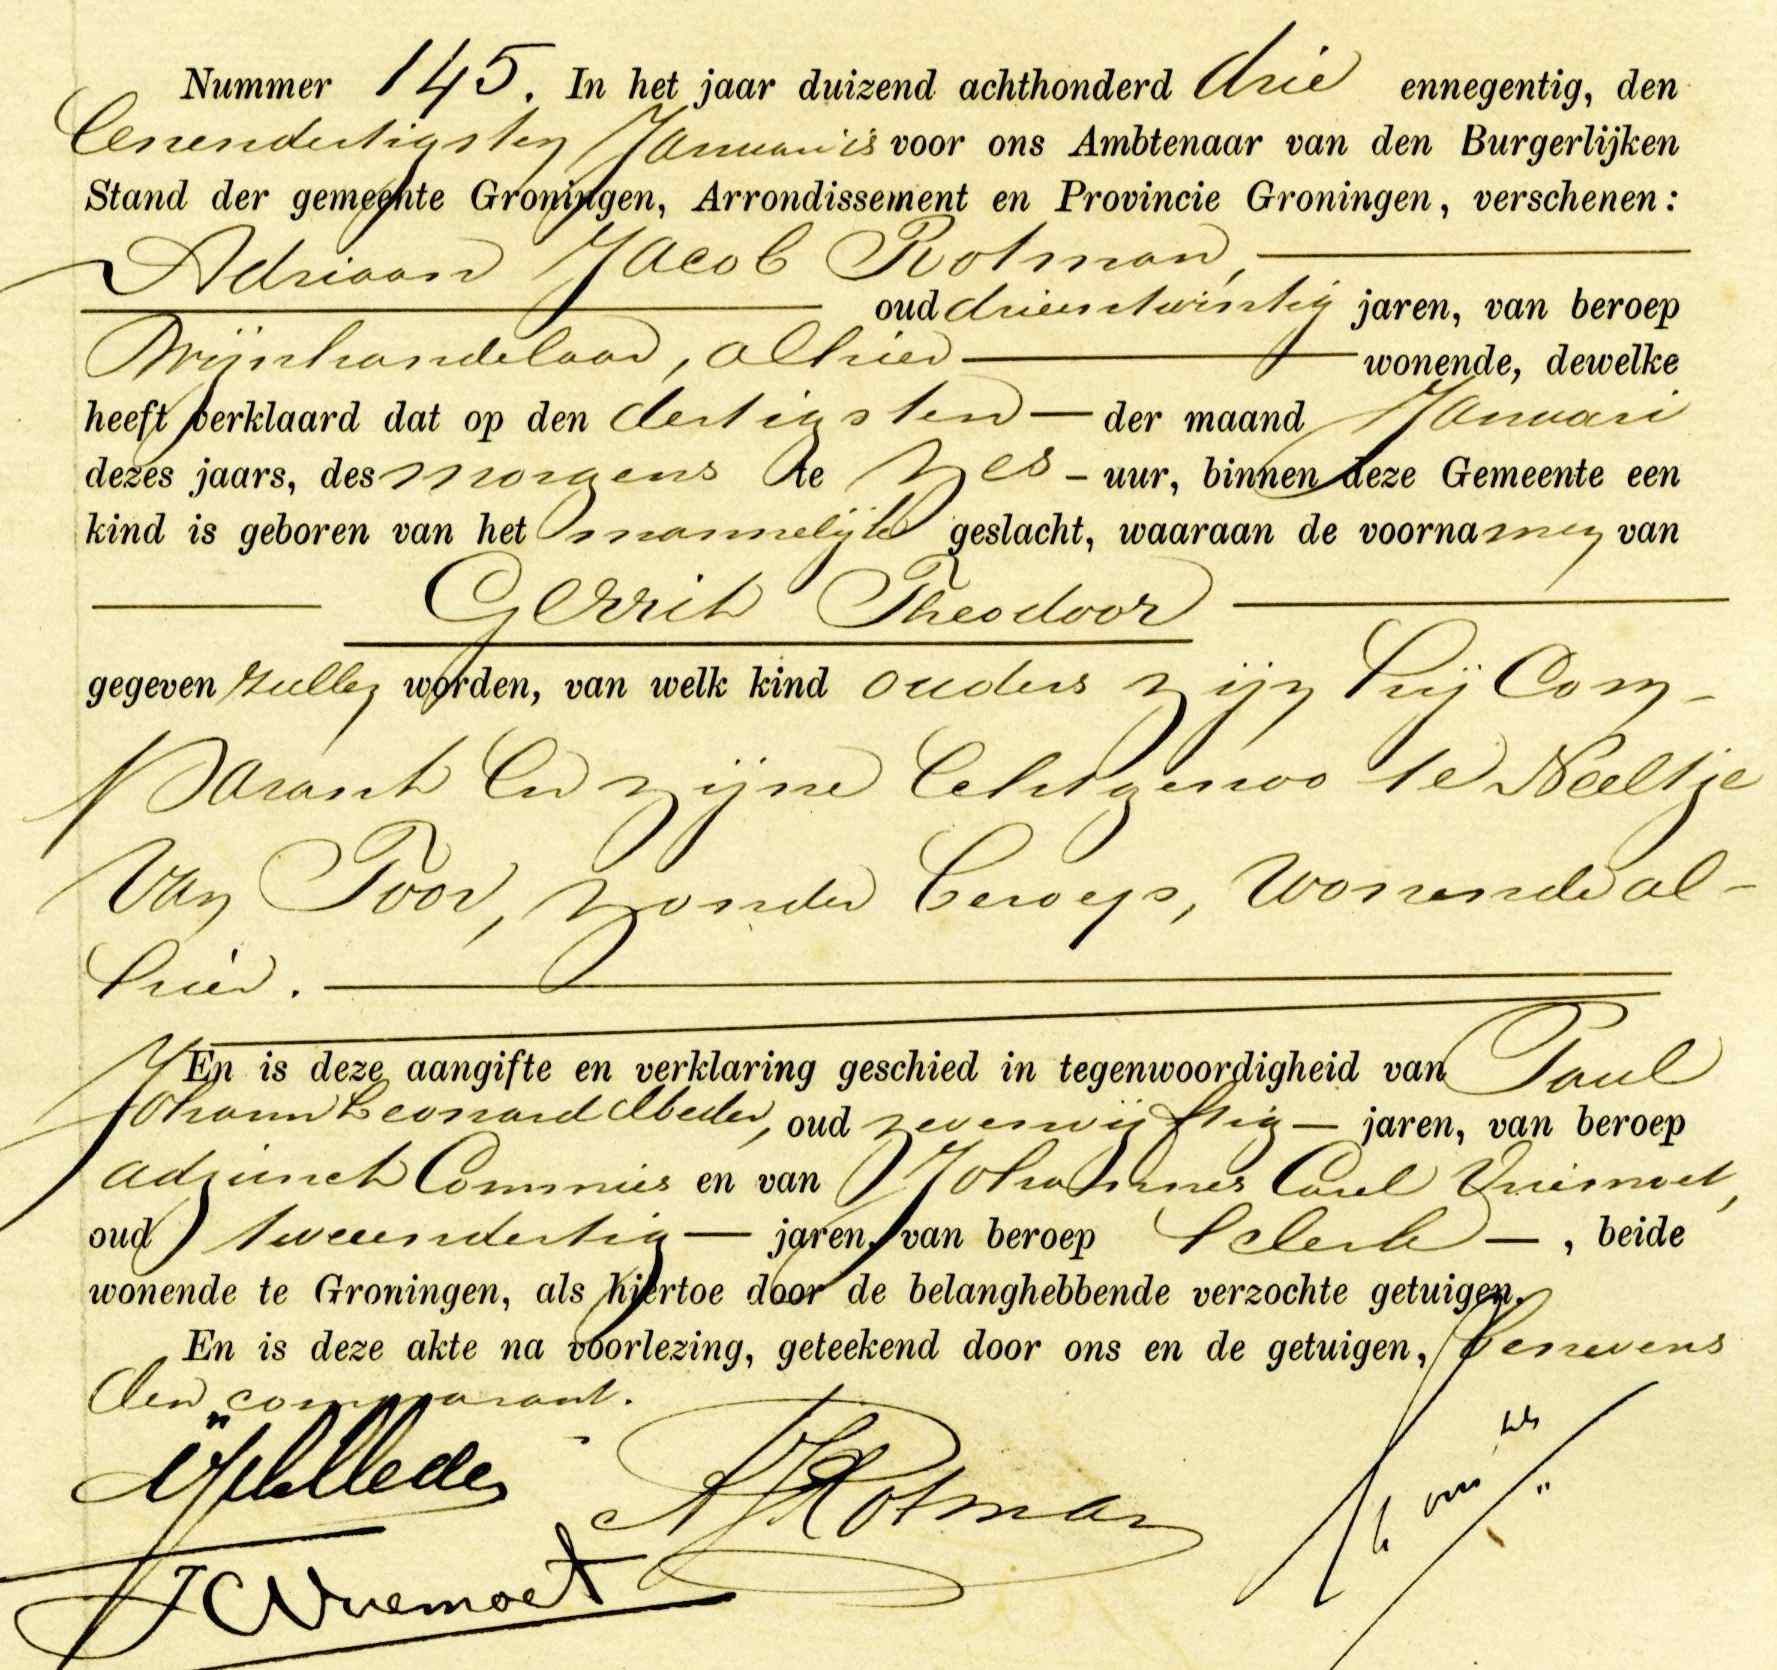 Nummer 145. In het jaar duizend achthonderd drie ennegentig, den
Eenendertigsten Januari is voor ons Ambtenaar van den Burgerlijken
Stand der gemeente Groningen, Arrondissement en Provincie Groningen, verschenen:
Adriaan Jacob Rotman,
oud drieentwintig jaren, van beroep
Wijnhandelaar, alhier wonende, dewelke
heeft verklaard dat op den dertigsten — der maand Januari
dezes jaars, des morgens te zes - uur, binnen deze Gemeente een
kind is geboren van het mannelijk geslacht, waaraan de voornamen van
Gerrit Theodoor
gegeven zullen worden, van welk kind ouders zijn hij Com-
parant en zijne Echtgenoote Neeltje
van Toor, zonder beroep, wonende al-
hier.
En is deze aangifte en verklaring geschied in tegenwoordigheid van Paul
Johann Leonard Meder, oud zevenvijftig — jaren, van beroep
adjunct Commies en van Johannes Carel Vriemoet,
oud tweeendertig — jaren, van beroep klerk — , beide
wonende te Groningen, als hiertoe door de belanghebbende verzochte getuigen.
En is deze akte na voorlezing, geteekend door ons en de getuigen, benevens
den comparant.
AJRotman
JCVriemoet